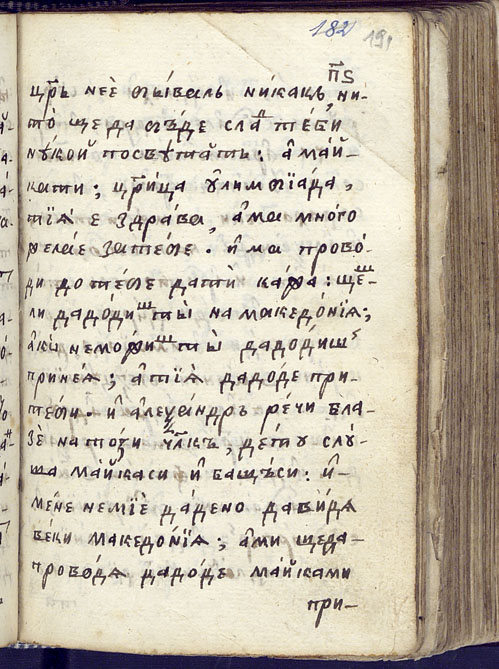 182 191
п҃ѕ
цр҃ь нее бывалъ никакъ, ни-
то щеда бъде слад теби
нꙋкой посвѣтатъ: а май-
ката; цр҃ица ѹлимбїада,
тїѧ е здрава, ама много
желае затебе. има прово-
ди дотебе дати кажа: ще-
ли дадодишъ ты на македонїѧ;
ако неможишъ ты дадодишъ
принеѧ; атїѧ дадоде при-
теби. и алеѯандръ речи бла-
зе натози чл҃къ, дето слꙋ-
ша майкаси и бащъси: и-
мене немїе дадено давидѧ
веки македонїѧ; ами щеда-
проводѧ дадоде майками
при-